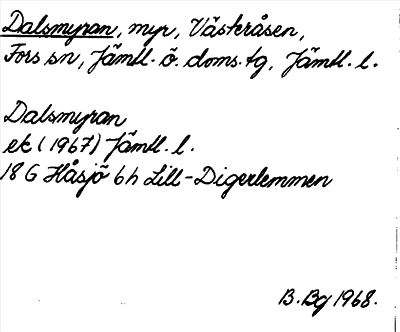 Dalsmyran, myr, Västeråsen,
Fors sn, Jämtl. ö. doms. tg, Jämtl. l.
Dalsmyran
ek (1967) Jämtl. l.
18 G Håsjö 6h Lill-Digerlemmen
B. Bg 1968.